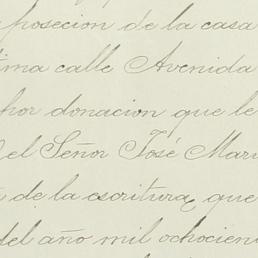 posecion de la casa
ima calle Avenida
por donacion que le
el Señor José Mar
de la escritura, que
del año mil ochocien